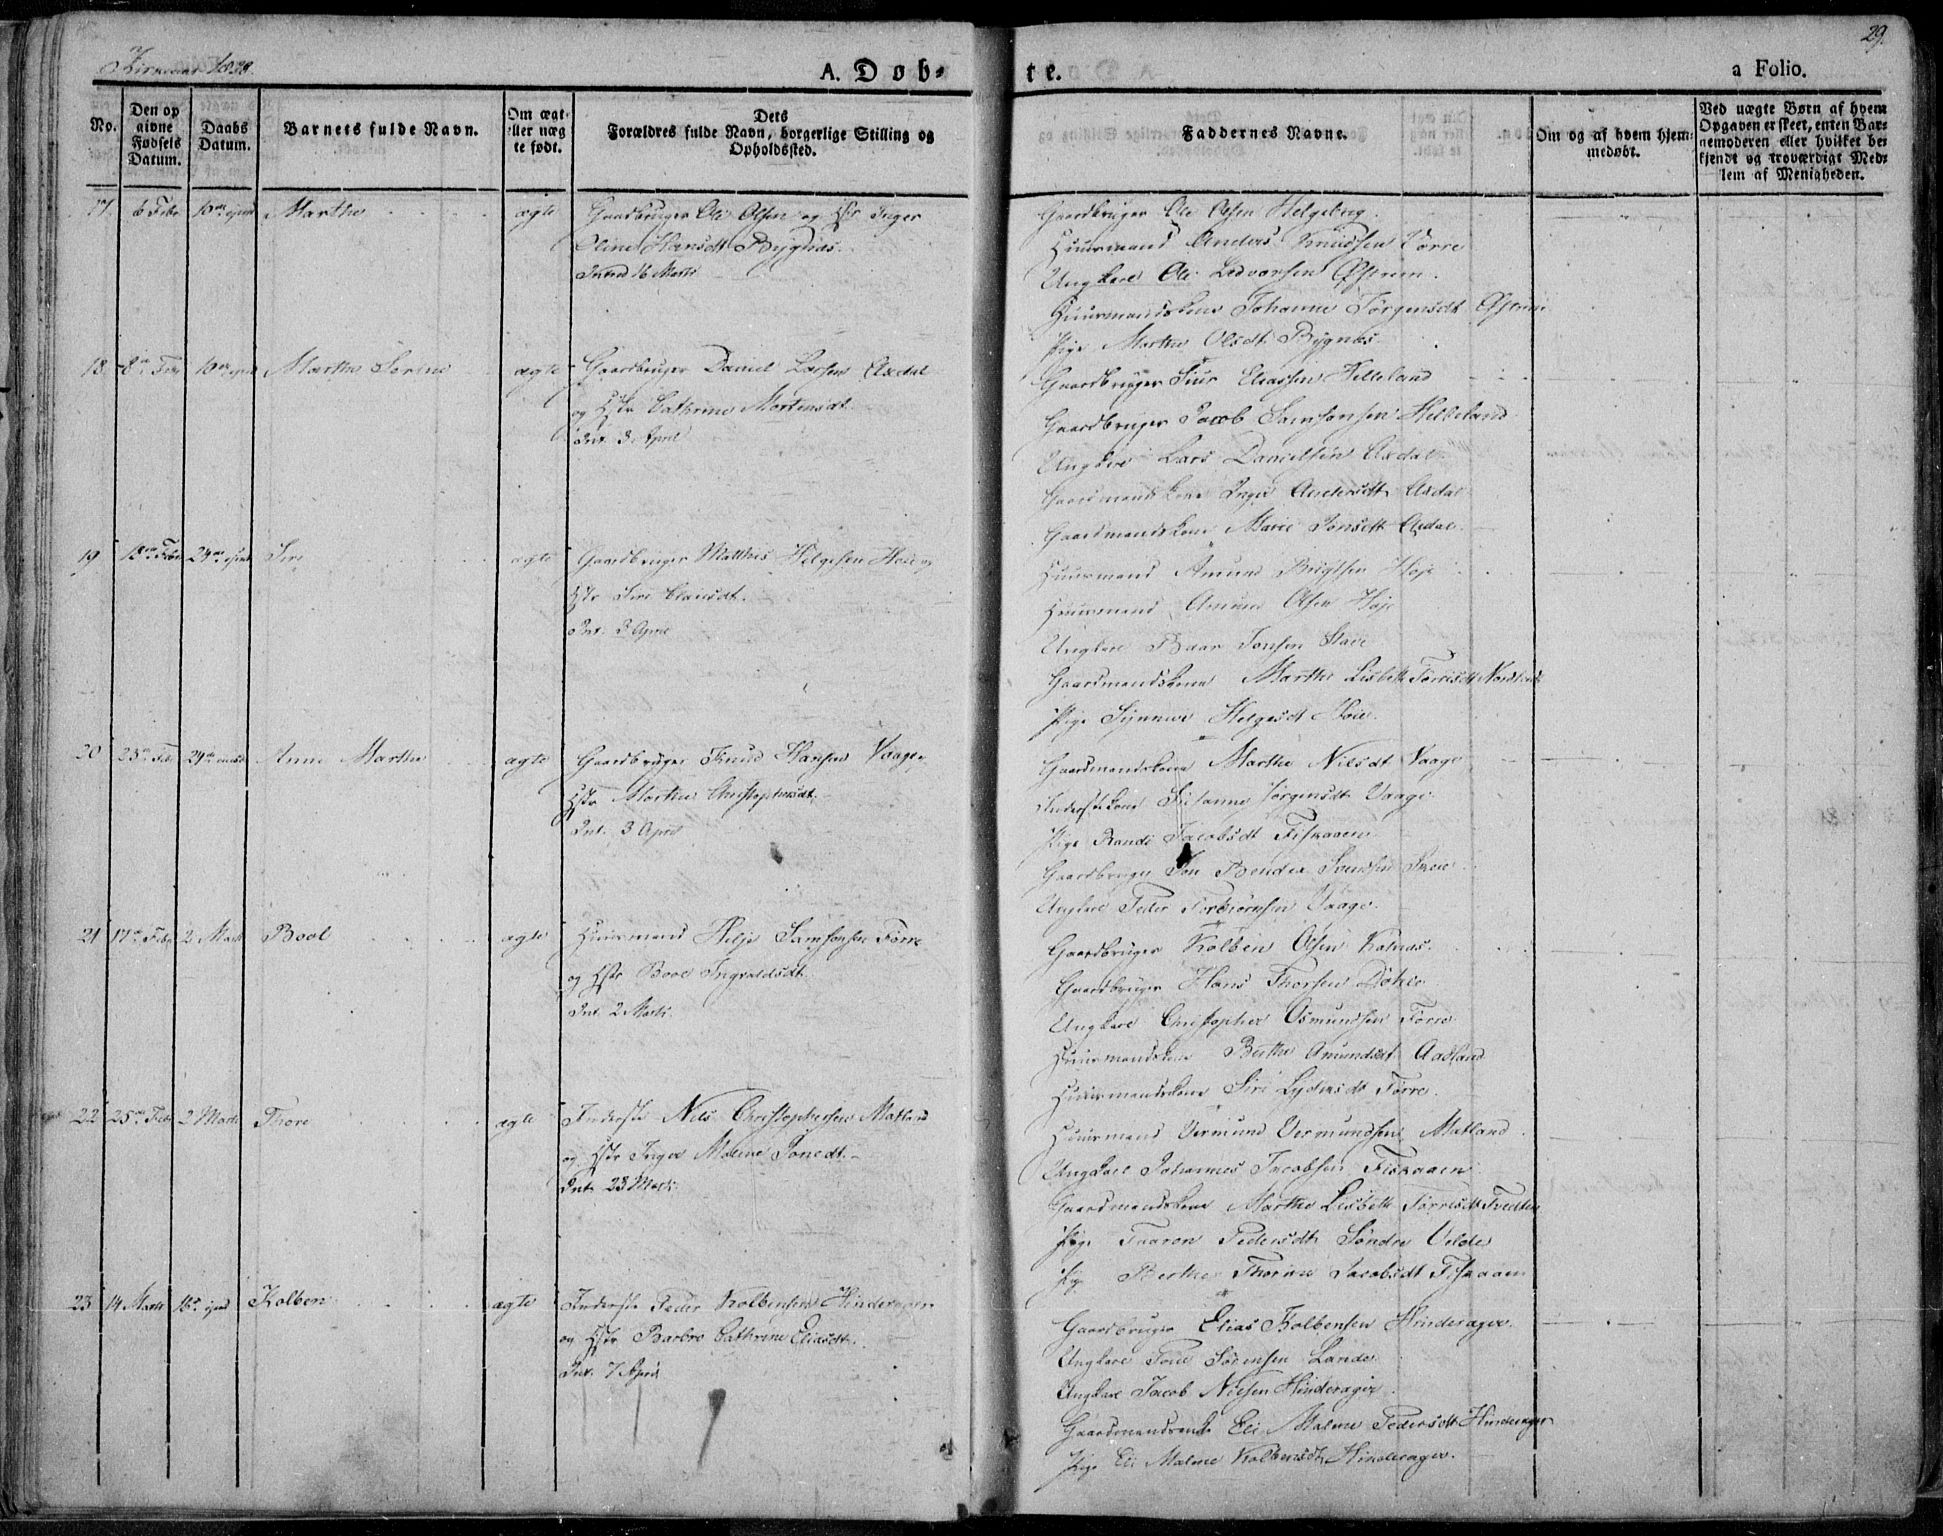 29.
Kirkeaar 1838.
A. Døb-
te.
a Folio.
No.
Den op
givne
Fødsels
Datum.
Daabs
Datum.
Barnets fulde Navn.
Om ægt
eller uæg
te født.
Dets
Forældres fulde Navn, borgerlige Stilling og
Opholdssted.
Faddernes Navne.
Om og af hvem hjem-
medøbt.
Ved uægte Børn af hvem
Opgaven er skeet, enten Bar-
nemoderen eller hvilket be-
kjendt og troværdigt Med-
lem af Menigheden.
17. 6 Febr 10de ejusd Marthe ægte Gaardbruger Ole Olsen og Hstr Inger
Oline Hansdt Bygnæs.
Introd 16 Marts
Gaardbruger Ole Olsen Helgeling.
Huusmand Anders Knudsen Førre
Ungkarl Ole Ledvorsen Østrem.
Huusmandskone Johanne Jørgensdt Østrem
Pige Marthe Olsdt Bygnæs.
18. 8de Febr 10de ejusd Marthe Serine ægte Gaardbruger Daniel Larsen Axdal
og Hstr Cathrine Mortensdt.
Int. 3 April
Gaardbruger Siur Eliassen Helleland
Gaardbruger Jacob Samsonsen Helleland
Ungkarl Lars Danielsen Axdal.
Gaardmandskone Inger Andersdt Axdal
Gaardmandskone Marie Jonsdt Axdal.
19 18de Febr 24de ejusd Siri ægte Gaardbruger Matthis Helgesen Høie og
Hstr Siri Clausdt.
Int. 3 April
Huusmand Amund Høje
Huusmand Amund Olsen Høje
Ungkarl Baar Jonsen
Gaardmandskone Marthe Lisbeth Torrisdt
Pige Synneve Helgesdt Høie.
20 23de Febr 24de ejusd Anne Marthe ægte Gaardbruger Knud Hansen Vaage
Hstr Marthe Christophersdt.
Int. 3 April
Gaardmandskone Marthe Nilsdt Vaage
Inderstekone Susanne Jørgensdt Vaage.
Pige Randi Jacobsdt Fiskaaen
Gaardbruger Jon Svendsen
Ungkarl Peder Torbiørnsen Vaage.
21 17de Febr 2 Marts Bool ægte Huusmand Helje Samsonsen Førre
og Hstr Bool Ingvaldsdt.
Int. 2 Marts.
Gaardbruger Kolben Olsen Kolnæs.
Gaardbruger Hans Thorsen Døhle
Ungkarl Christopher Osmundsen Førre
Huusmandskone Berthe Amundsdt Aadland
Huusmandskone Siri Lydersdt Førre.
22 25de Febr 2 Marts Thore ægte Inderste Nils Christophersen Matland
og Hstr Inger Malene Jonsdt.
Int. 23 Marts.
Huusmand Vermund Vermundsen Matland
Ungkarl Johannes Jacobsen Fiskaaen
Gaardmandskone Marthe Lisbeth Torrisdt Tvedten
Pige Taaron Pedersdt Søndre Velde
Pige Berthe Thorine Jacobsdt Fiskaaen
23 14 Marts 16de ejusd Kolben ægte Inderste Peder Kolbensen Hinderager
og Hstr Barbro Cathrine Eliasdt.
Int. 7 April
Gaardbruger Elias Kolbensen Hinderager.
Ungkarl Tone Sørensen Lande
Ungkarl Jacob Nielsen Hinderager
Gaardmandsenke Eli Malene Pedersdt Hinderager
Pige Eli Malene Kolbensdt Hinderager.